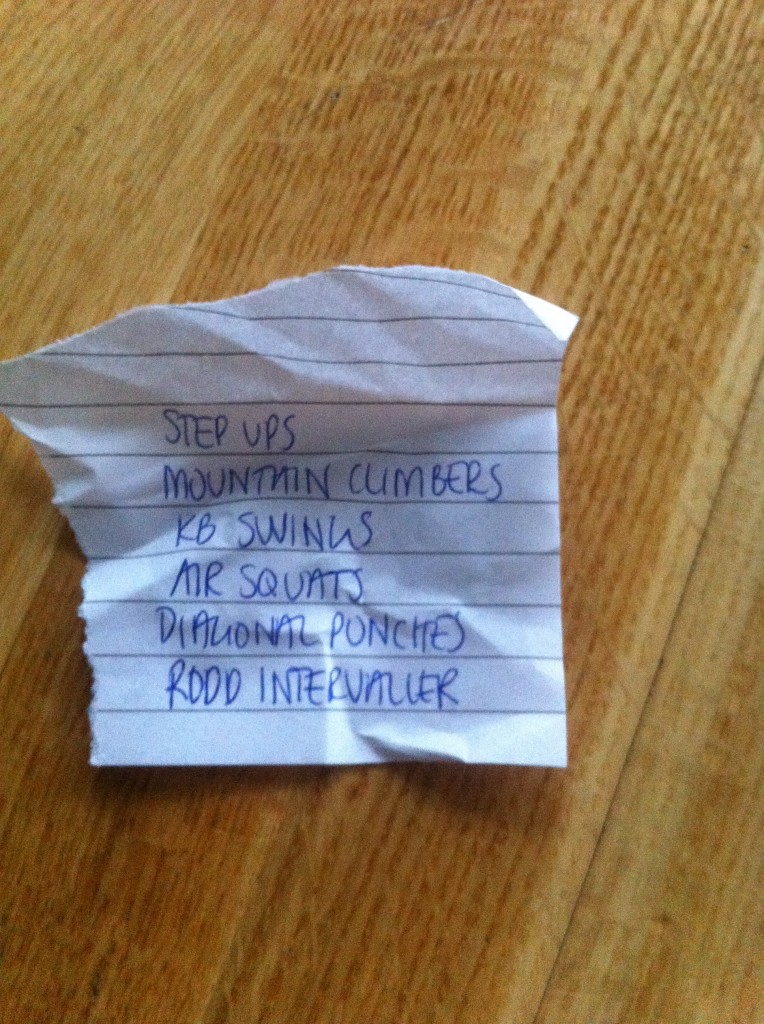 STEP UPS
MOUNTAIN CLIMBERS
KB SWINGS
AIR SQUATS
DIAGONAL PUNCHES
RODD INTERVALLER